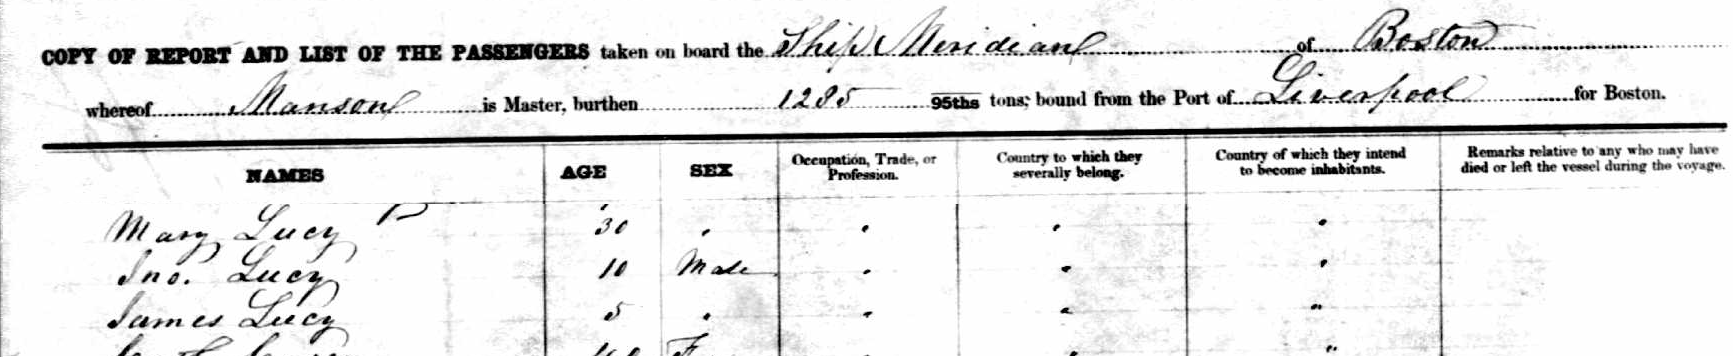 COPY OF REPORT AND LIST OF THE PASSENGERS taken on board the Ship Meridian of Boston
whereof Manson is Master, burthen 1285 95ths tons; bound from the Port of Liverpool for Boston.
NAMES AGE SEX Occupation, Trade, or Profession. Country to which they severally belong. Country of which they intend to become inhabitants. Remarks relative to any who may have died or left the vessel during the voyage.
Mary Lucy 30 " " " "
Jno. Lucy 10 Male " " "
James Lucy 5 " " " "